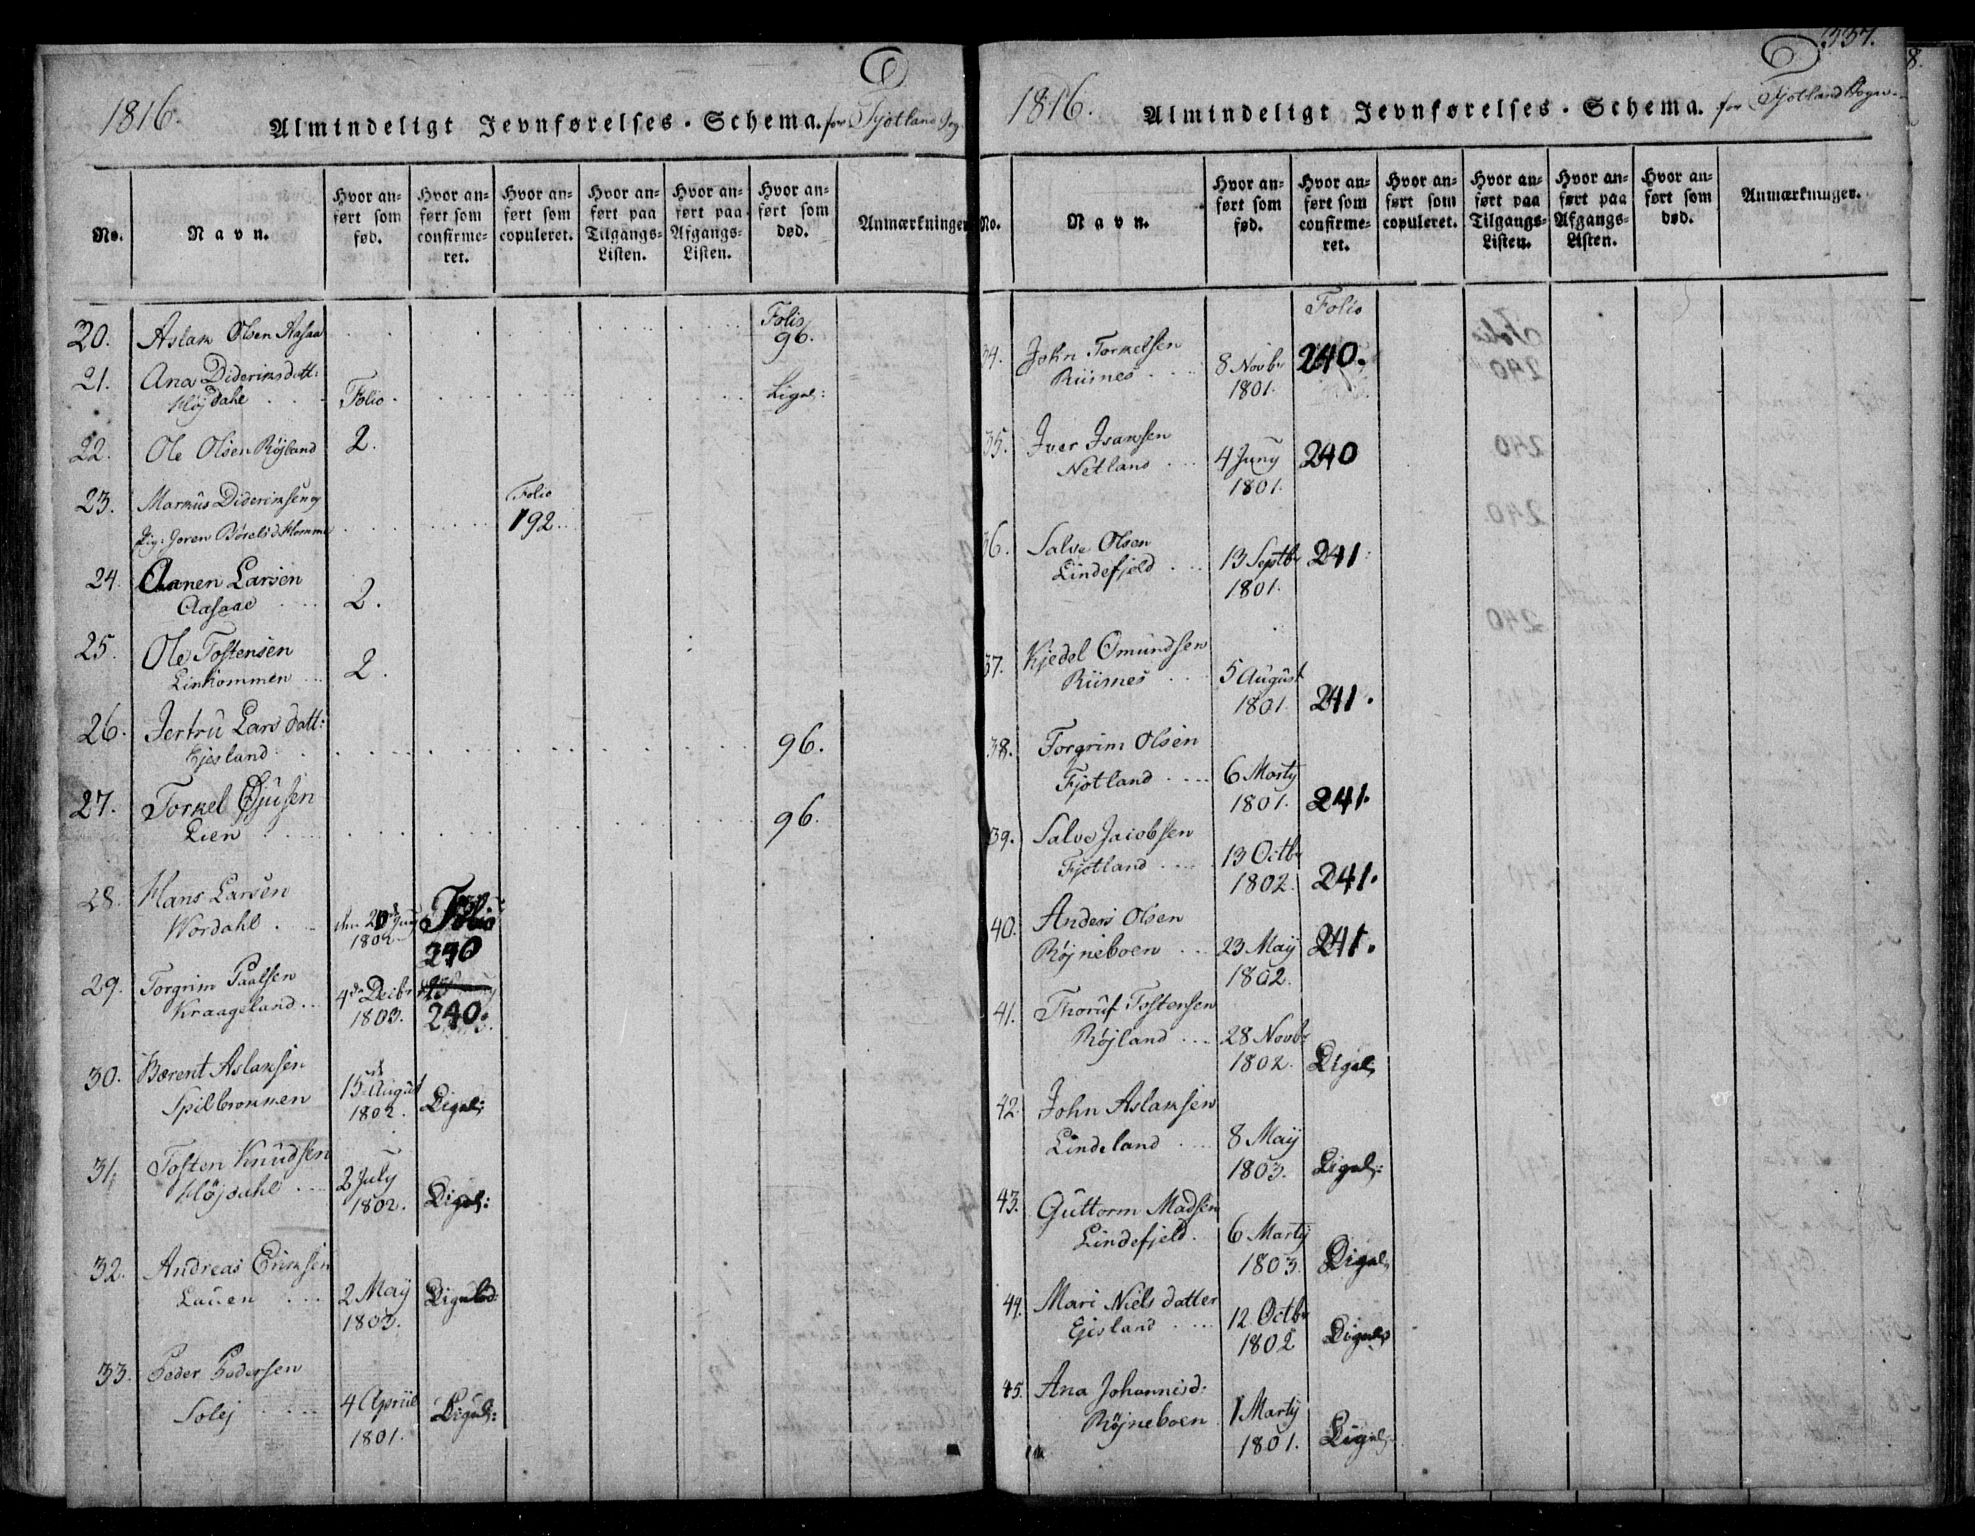 1816. Almindeligt Jevnførelses-Schema. for Fjotland Sog
No. Navn. Hvor anført som fød. Hvor anført som confirmeret. Hvor anført som copuleret. Hvor anført paa Tilgangs-Listen. Hvor anført paa Afgangs-Listen. Hvor anført som død. Anmærkninger
Folio
20. Aslak Olsen Aasaa 96.
21. Ana Dideriksdatt:
Høj dahl Folio. Ligel:
22. Ole Olsen Røjland 2.
23. Markus Dideriksen og Folio
Pig: Joren Børels d. Homme 192
24. Aanen Larsen
Aasaae 2.
25. Ole Tostensen
Linkommen 2.
26. Jertru Lars datt:
Ejesland 96.
27. Torkel Øjusen
Lien 96.
28. Hans Larsen Folio
Wordahl 1802 240
29. Torgrim Paalsen 4de Decbr
Kraageland 1803. 240.
30. Bærent Aslaksen 15 August
Spilbrokken 1802. Ligel:
31. Tosten Knudsen 2 July
Højdahl 1802. Ligel:
32. Andreas Eriksen 2 May Ligeled:
Lauen 1803.
33. Peder Pedersen 4 Apriil Ligel:
Solej 1801.
337.
1816. Almindeligt Jevnførelses-Schema. for Fjotland Sogn
No. Navn. Hvor anført som fød. Hvor anført som confirmeret. Hvor anført som copuleret. Hvor anført paa Tilgangs-Listen. Hvor anført paa Afgangs-Listen. Hvor anført som død. Anmærkninger.
Folio
34. John Torkelsen 8 Novbr 240.
Riisnes 1801.
35. Iver Isaksen 4 Juny 240
Netland 1801.
36. Salve Olsen 13 Septbr 241
Lindefjeld 1801.
37. Kjedel Omundsen 5 August
Riisnes 1801. 241.
38. Torgrim Olsen 6 Marty
Fjotland 1801. 241.
39. Salve Jacobsen 13 Octbr
Fjotland 1802. 241.
40. Anders Olsen 23 May 241.
Røjneboen 1802.
41. Thoruf Tostensen 28 Novbr
Røjland 1802. Ligel:
42. John Aslaksen 8 May
Lindeland 1803. Ligel:
43. Guttorm Madsen 6 Marty
Lindefjeld. 1803. Ligel:
44. Mari Niels datter 12 Octbr
Ejesland 1802 Ligel:
45. Ana Johannisd: 1 Marty
Røjneboen 1801. Ligel: